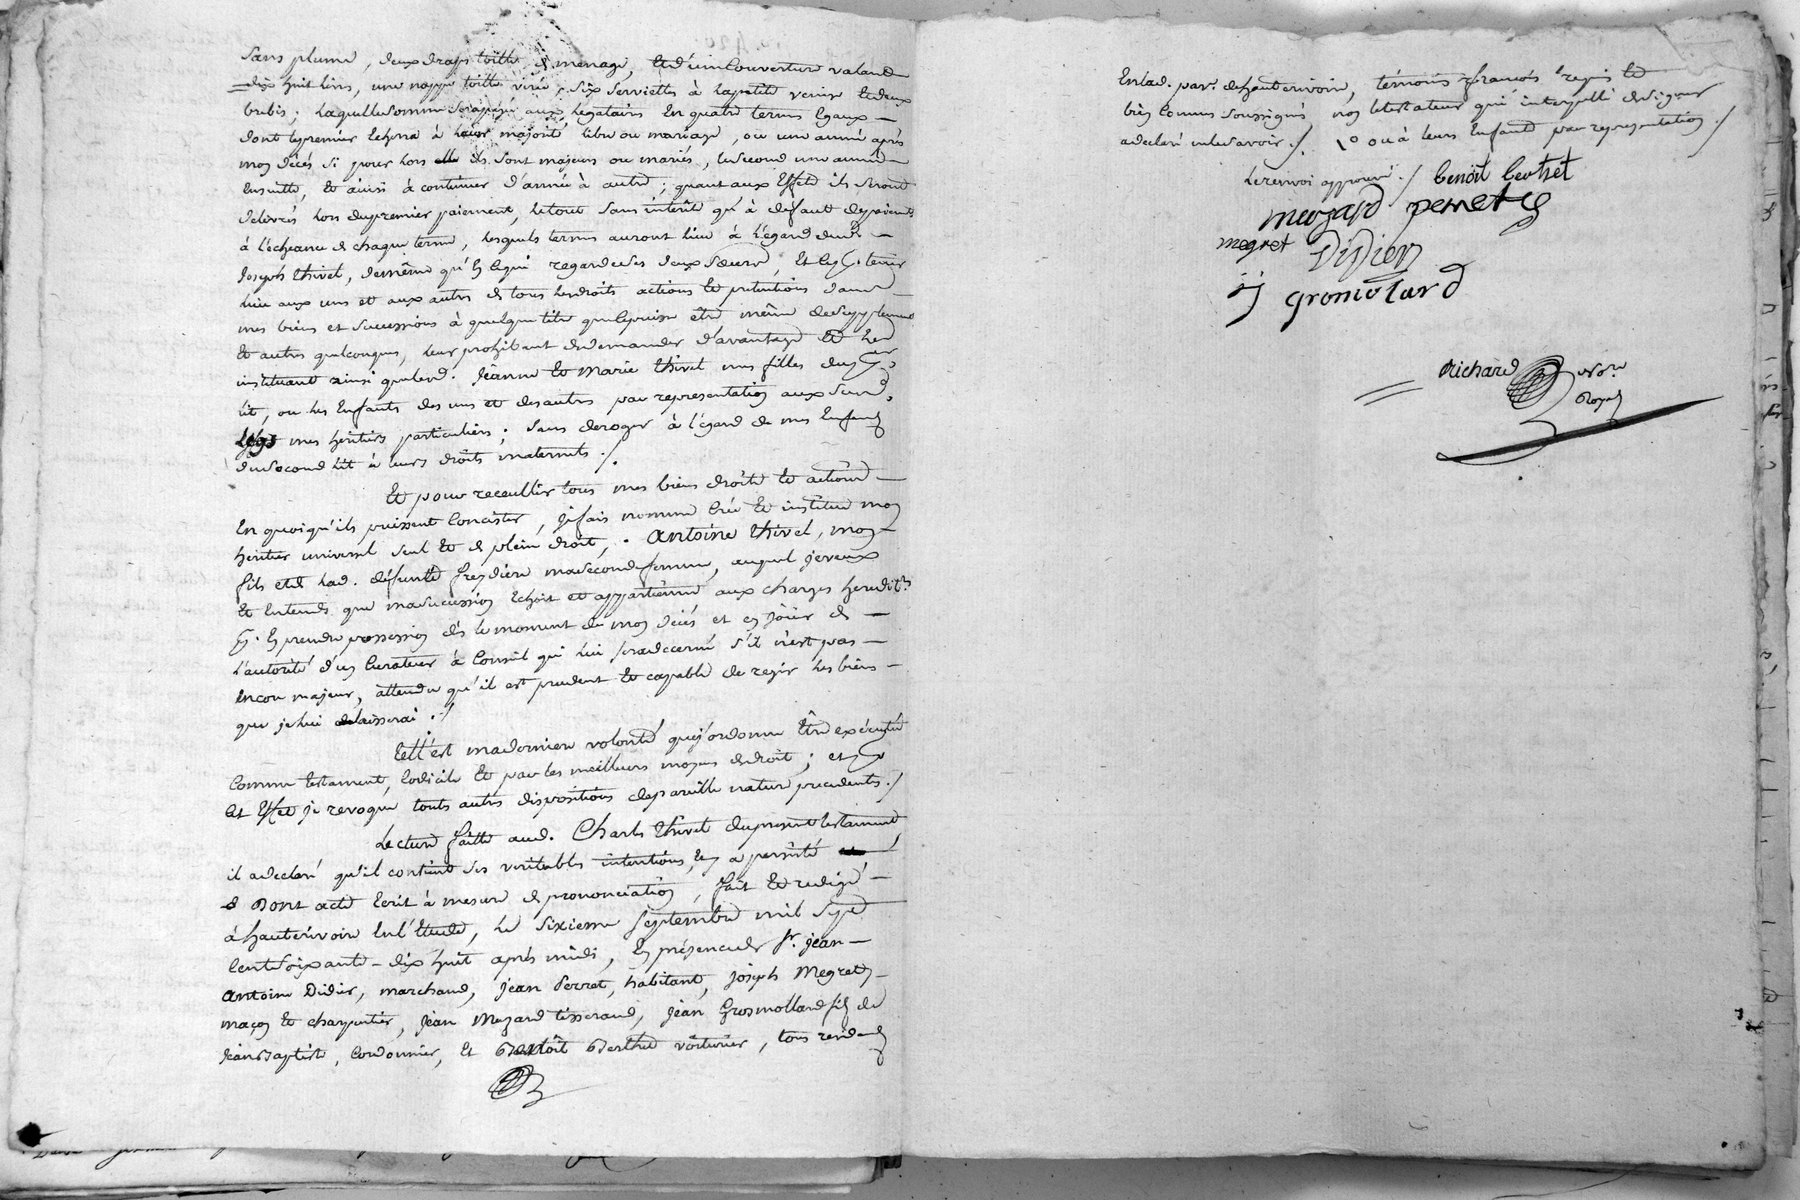 sans plume, deux draps toille de menage, et d'une Couverture valand
dix huit livres, une nappe toille virée, six serviettes à la petite venise et deux
brebis; laquelle somme sera payée aux legataires En quatre termes Egaux
dont le premier Echerra à leur majorité libre ou mariage, ou une année après
mon décés si pour lors ils sont majeurs ou mariés, le second une année
Ensuitte, et ainsi à continuer d'année à autre; quant aux Effets ils seront
délivrés lors du premier paiement, le tout sans interêt qu'à défaut de paiement
à l'echeance de chaque terme, lesquels termes auront lieu à l'égard dud.
joseph thivel, de même qu'En ce qui regarde ses deux sœurs, Et ce tenir
lieu aux uns et aux autres de tous les droits actions et pretentions dans
mes biens et successions à quelque titre que ce puisse être même de supplement
et autres quelconques, leur prohibant de demander d'avantage et les
instituant ainsi que lesd. jeanne et marie thivel mes filles du
lit, ou les Enfants des uns et des autres par representation aux susd.
legs mes héritiers particuliers; sans deroger à l'égard de mes Enfans
du second lit à leurs droits maternels ./.
Et pour receuillir tous mes biens droits et actions
En quoi qu'ils puissent Concister, je fais nomme Crée et institue mon
heritier universel seul et de plein droit, Antoine thivel, mon
fils et de lad. défunte ma seconde femme, auquel je veux
et Entends que ma succession Echoit et appartienne aux charges heredit.
En prendre possession dès le moment de mon décés et en jouir de
l'autorité d'un Curateur à Conseil qui lui sera décerné s'il n'est pas
encore majeur, attendu qu'il est prudent et capable de regir les biens
que je lui delaisserai ./.
telle est ma derniere volonté que j'ordonne Être exécutée
Comme testament, Codicile et par les meilleurs moyens de droit; et
cet Effet je revoque touts autres dispositions de pareille nature precedentes ./.
Lecture faitte aud. Charles thivel du present testament
il a declaré qu'il contient ses veritables intentions, y a persisté
Dont acte Ecrit à mesure de prononciation, fait et redigé
à hauterivoire En l'Etude, le sixieme septembre mil sept
Cent soixante-dix huit après midi, En présence de sr. jean
Antoine Didier, marchand, jean Perret, habitant, joseph Megret
maçon et charpentier, jean Muzard tisserand, jean Grosmollard fils de
jean Baptiste, Cordonnier, et Benoît Berthet voiturier, tous residents
En lad. par. de hauterivoire, témoins requis et
bien Connus soussignés non le testateur qui interpellé de signer
a declaré ne le savoir ./. 1° ou à leurs Enfants par representation ./
le renvoi approuvé ./ benoît bertret
muzard perret
megret Didier
jj gromolard
Richard No.re
Royal